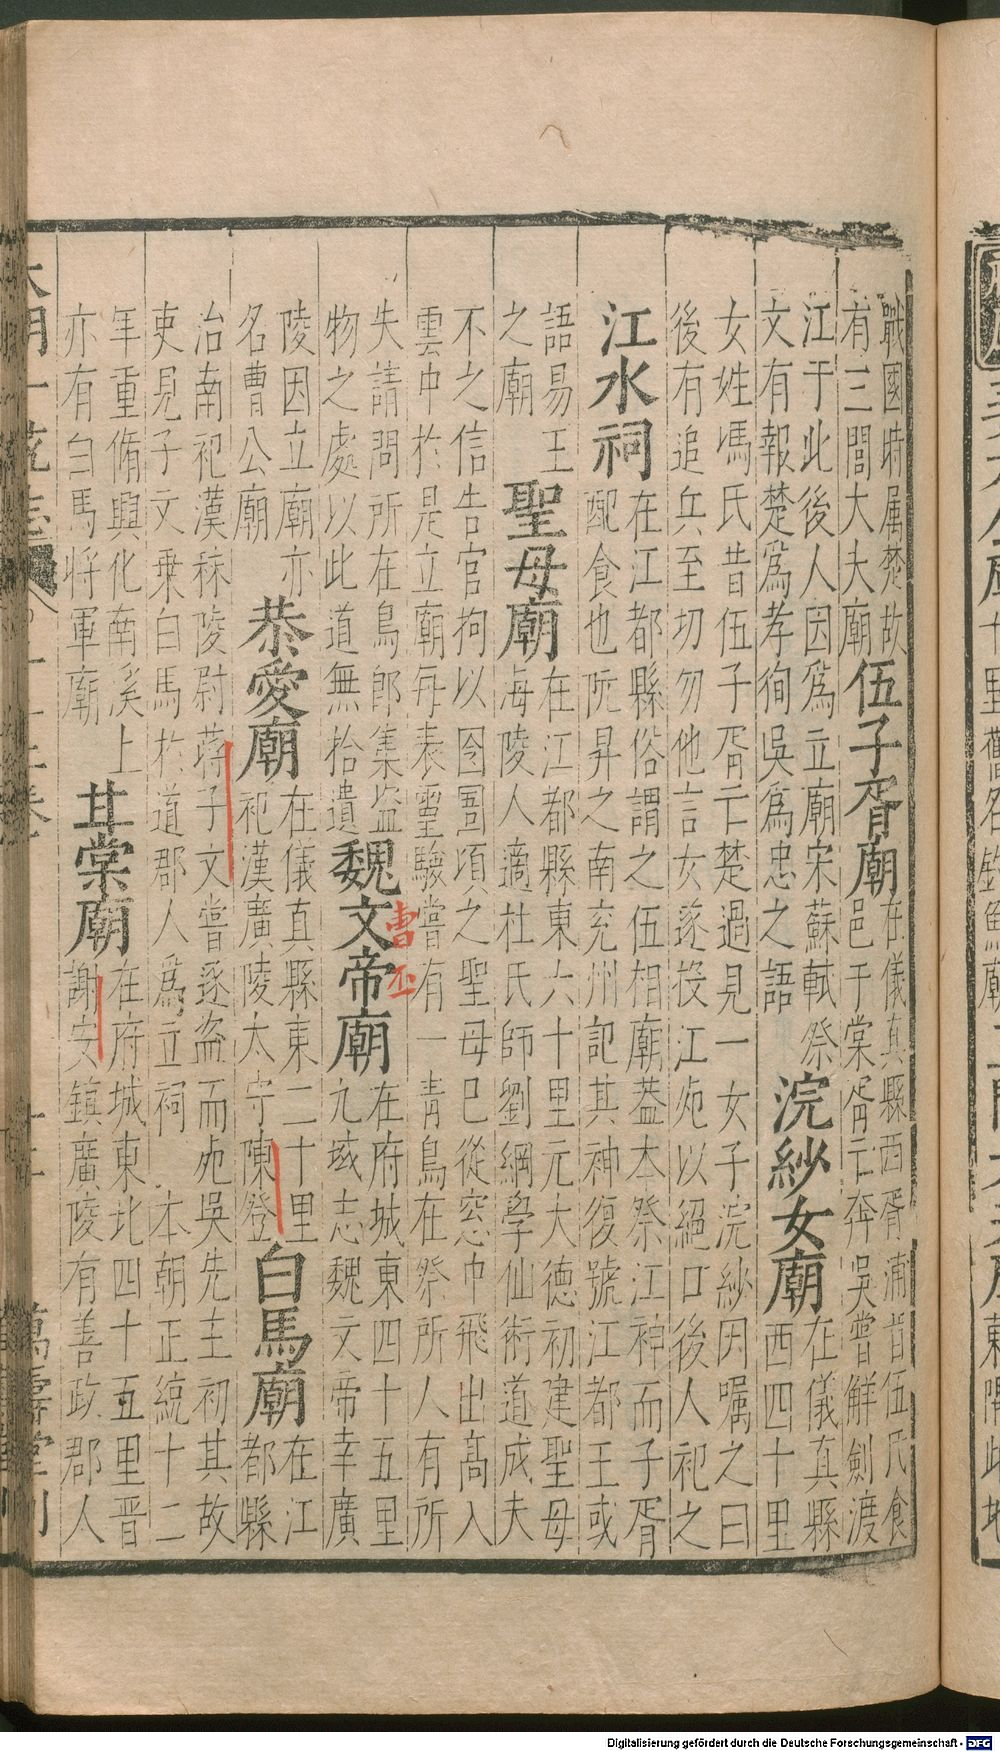 戰國時属楚故
有三閭大夫廟
伍子胥廟
在儀真縣西胥浦昔伍氏食
邑于棠胥亡奔吳嘗解劍渡
江于此後人因爲立廟宋蘇軾祭
文有報楚爲孝徇吳爲忠之語
浣紗女廟
在儀真縣
西四十里
女姓馮氏昔伍子胥亡楚過見一女子浣紗因嘱之曰
後有追兵至切勿他言女遂投江死以絕口後人祀之
江水祠
在江都縣俗謂之伍相廟葢本祭江神而子胥
配食也阮昇之南兖州記其神復號江都王或
語易王
之廟
聖母廟
在江都縣東六十里元大德初建聖母
海陵人適杜氏師劉綱學仙術道成夫
不之信告官拘以囹圄頃之聖母巳從窓中飛出髙入
雲中於是立廟每表霊驗嘗有一青鳥在祭所人有所
失請問所在鳥郎集盗
物之處以此道無拾遺
魏文帝廟
曹丕
在府城東四十五里
九域志魏文帝幸廣
陵因立廟亦
名曹公廟
恭愛廟
在儀真縣東二十里
祀漢廣陵太守陳登
白馬廟
在江
都縣
治南祀漢秣陵尉蒋子文嘗逐盗而死吳先主初其故
吏見子文乗白馬於道郡人爲立祠 本朝正統十二
年重脩興化南溪上
亦有白馬將軍廟
甘棠廟
在府城東北四十五里晋
謝安鎮廣陵有善政郡人
大明一統志
十二卷
十二
萬壽堂刊
Digitalisierung gefördert durch die Deutsche Forschungsgemeinschaft - DFG